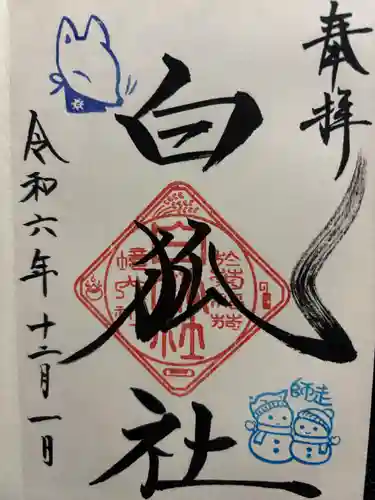 奉拝
白狐社
師走
令和六年十二月一日